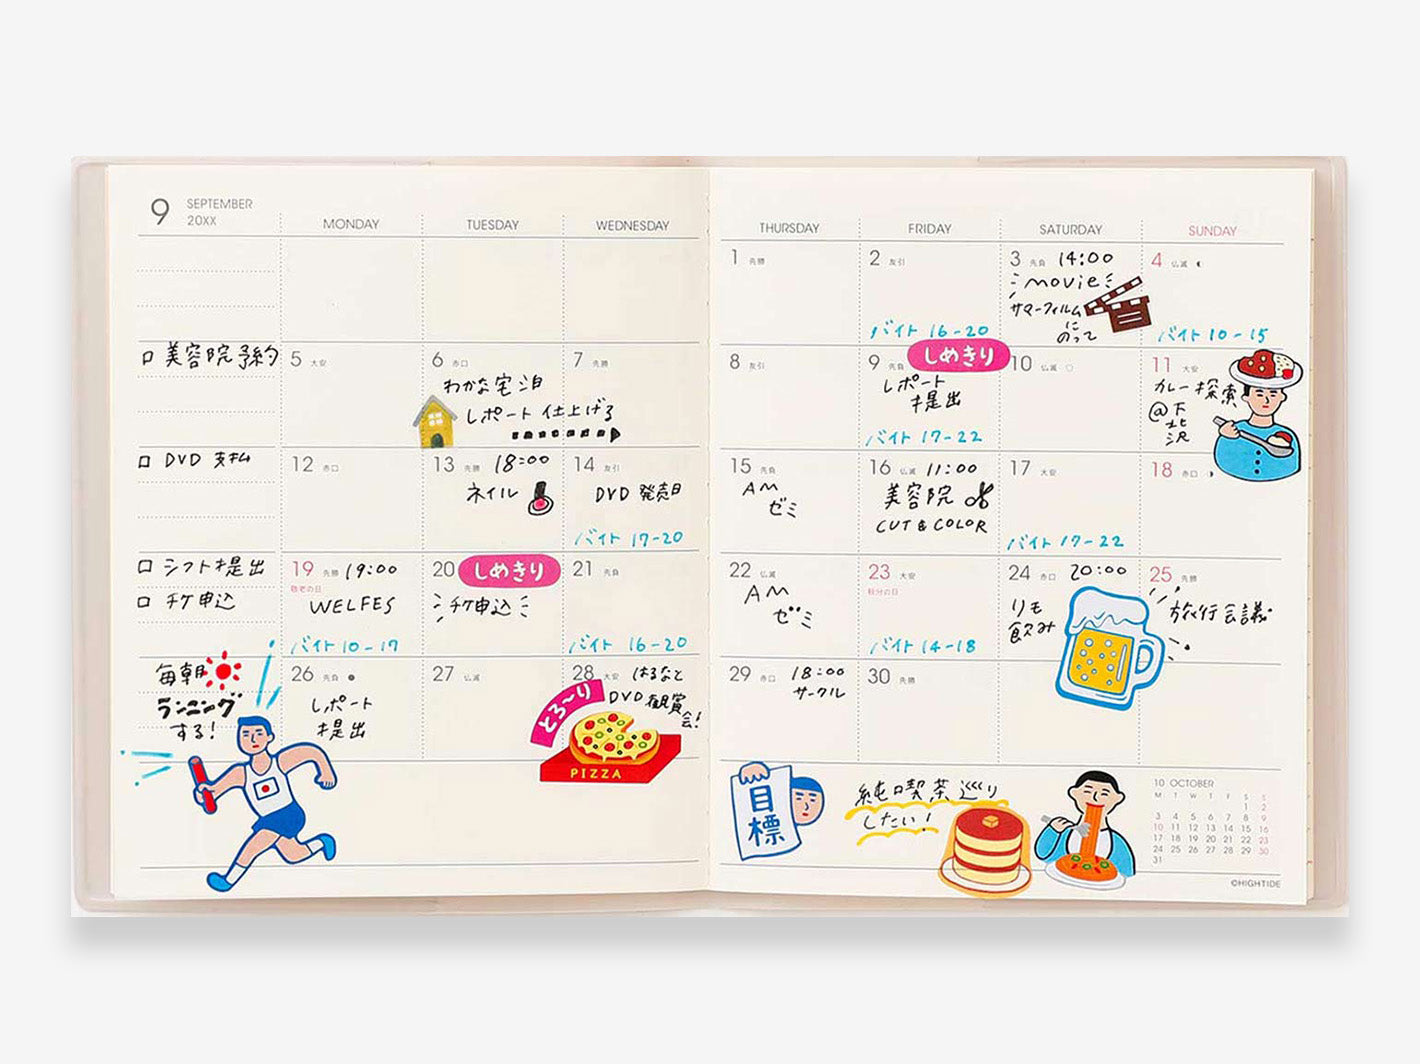 9 SEPTEMBER
20XX
MONDAY TUESDAY WEDNESDAY THURSDAY FRIDAY SATURDAY SUNDAY
1 先勝
2 友引
バイト 16-20
3 先負 14:00
movie
サマーフィルム
に
のって
4 仏滅
バイト 10-15
□ 美容院予約
5 大安
6 赤口
わかな宅泊
レポート 仕上げる
7 先勝
8 友引
9 先負
しめきり
レポート
提出
バイト 17-22
10 仏滅
11 大安
カレー探索
@下
北
沢
□ DVD 支払
12 赤口
13 先勝 18:00
ネイル
14 友引
DVD 発売日
バイト 17-20
15 先負
AM
ゼミ
16 仏滅 11:00
美容院
CUT & COLOR
17 大安
バイト 17-22
18 赤口
□ シフト提出
□ チケ申込
19 先勝 19:00
敬老の日
WELFES
バイト 10-17
20
しめきり
チケ申込
21 先負
バイト 16-20
22 仏滅
AM
ゼミ
23 大安
秋分の日
バイト 14-18
24 赤口 20:00
リモ
飲み
25 先勝
旅行会議
毎朝
ランニング
する!
26 先負
レポート
提出
27 仏滅
28 大安 はるなと
DVD 観賞
会!
とろ〜り
PIZZA
29 赤口 18:00
サークル
30 先勝
目標
純喫茶巡り
したい!
10 OCTOBER
M T W T F S S
1 2
3 4 5 6 7 8 9
10 11 12 13 14 15 16
17 18 19 20 21 22 23
24 25 26 27 28 29 30
31
©HIGHTIDE